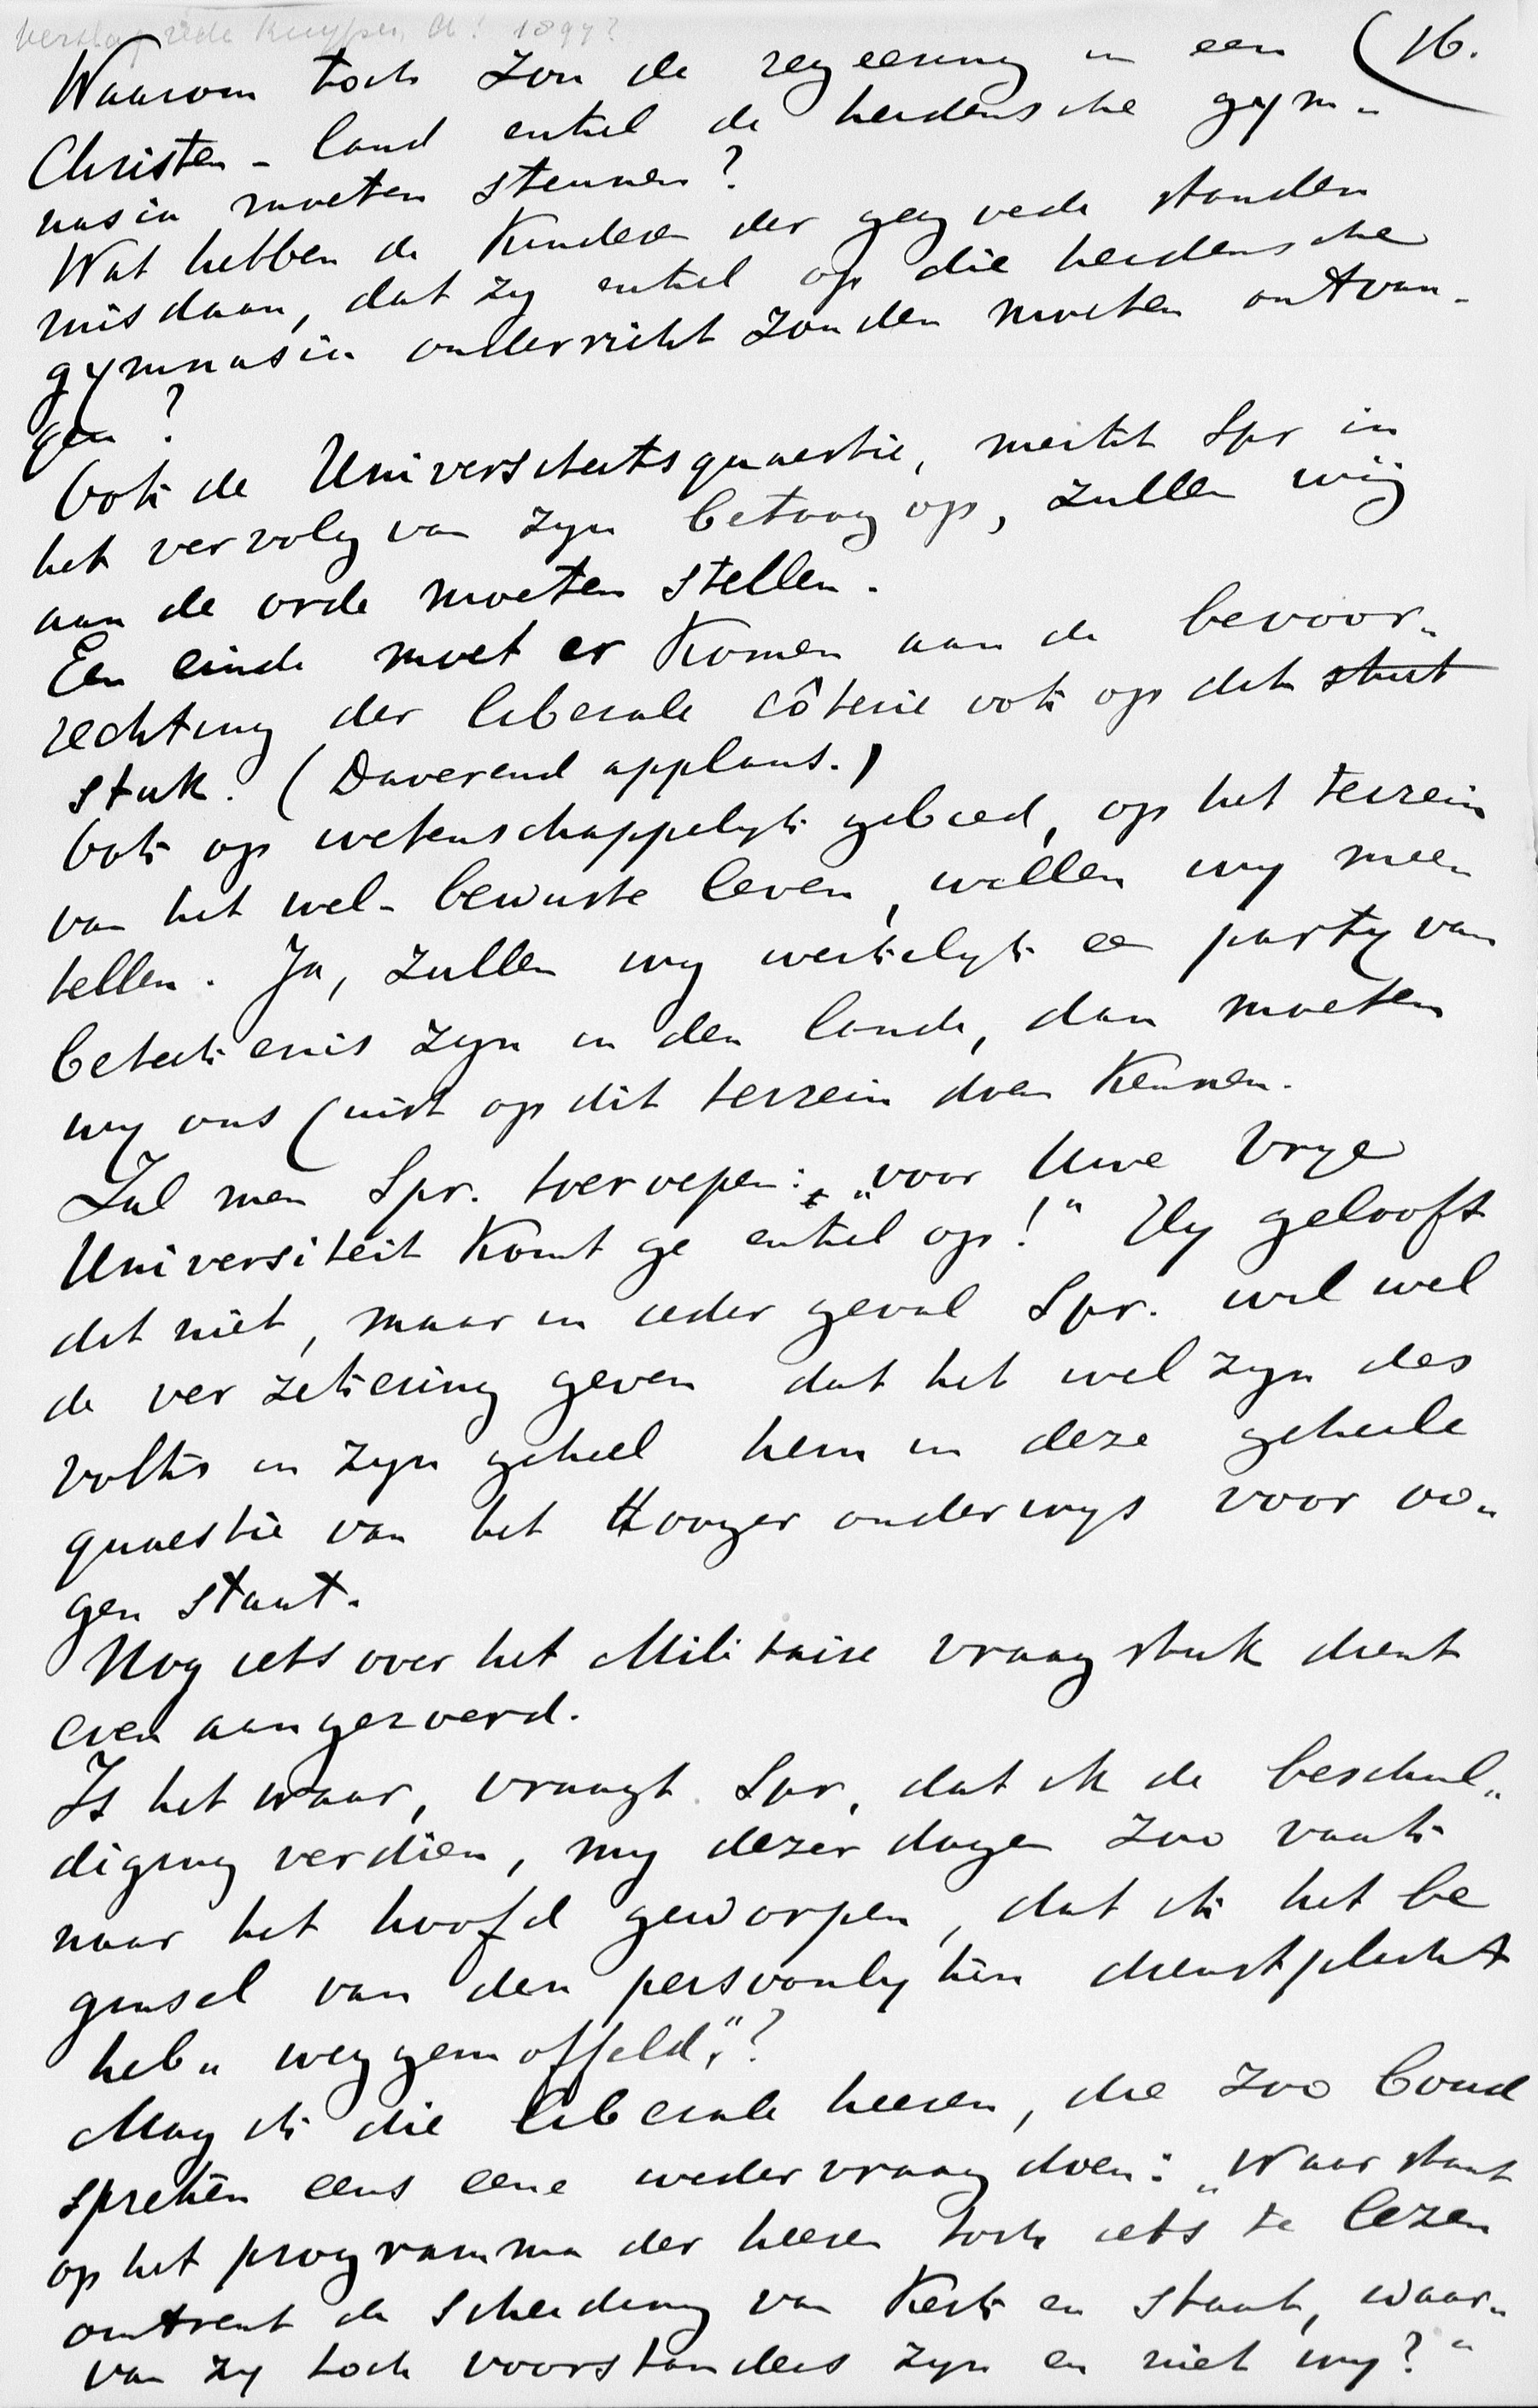 verslag rede Kuyper, A! 1897?
(16.
Waarom toch zou de regeering in een
Christen-land enkel de heidensche gym-
nasia moeten steunen?
Wat hebben de kinderen der gegoede standen
misdaan, dat zy enkel op die heidensche
gymnasia onderricht zouden moeten ontvan-
gen?
Ook de Universiteitsquaestie, merkt Spr in
het vervolg van zyn betoog op, zullen wij
aan de orde moeten stellen.
Een einde moet er komen aan de bevoor-
rechting der liberale côterie ook op dit stut
stuk. (Daverend applaus.)
Ook op wetenschappelyk gebied, op het terrein
van het wel-bewuste leven, willen wy meê
tellen. Ja, zullen wy werkelyk een party van
beteekenis zyn in den lande, dan moeten
wy ons juist op dit terrein doen kennen.
Zal men Spr. toeroepen: „voor Uwe Vrye
Universiteit komt ge enkel op!" Hy gelooft
dit niet, maar in ieder geval Spr. wil wel
de verzekering geven dat het welzyn des
volks in zyn geheel hem in deze geheele
quaestie van het Hooger onderwys voor oo-
gen staat.
Nog iets over het Militaire vraagstuk dient
even aangeroerd.
Is het waar, vraagt Spr, dat ik de beschul-
diging verdien, my dezer dagen zoo vaak
naar het hoofd geworpen, dat ik het be
ginsel van den persoonlyken dienstplicht
heb „weggemoffeld"?
Mag ik die liberale heeren, die zoo boud
spreken eens eene wedervraag doen: „Waar staat
op het programma der heeren toch iets te lezen
omtrent de scheiding van Kerk en staat, waar-
van zy toch voorstanders zyn en niet wy?"